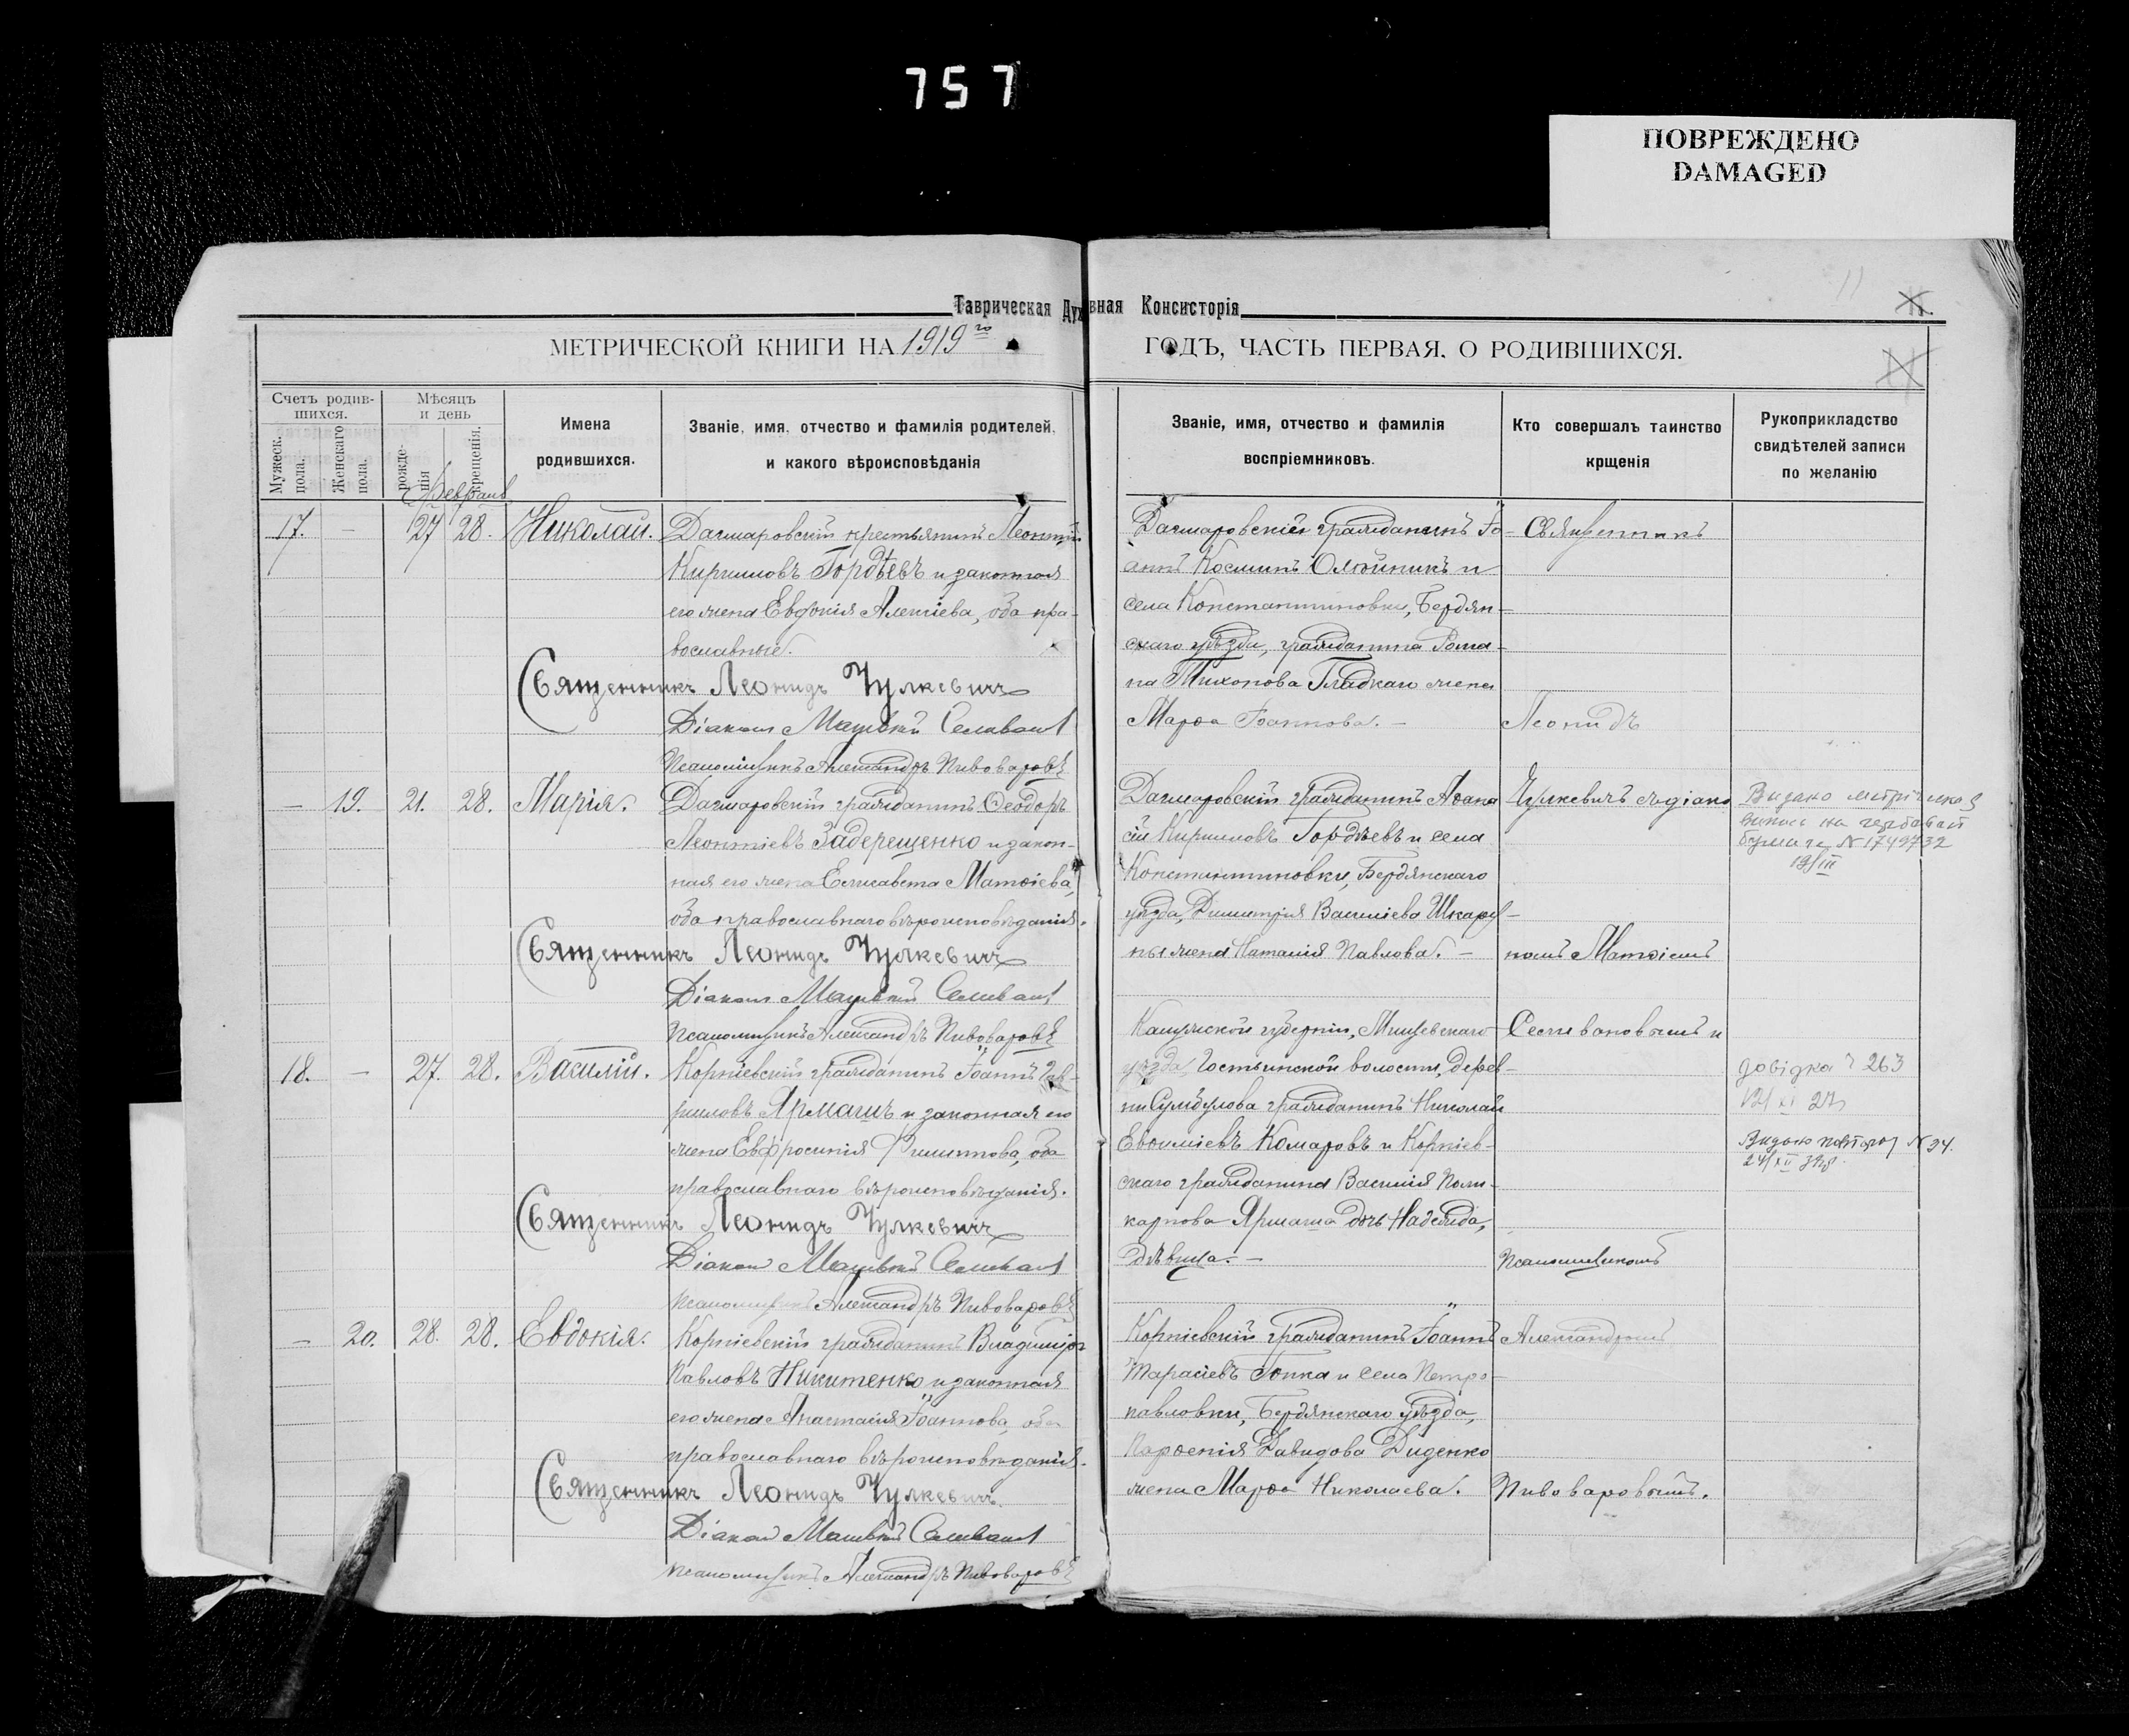 757
ПОВРЕЖДЕНО
DAMAGED
Таврическая Духовная Консисторія
МЕТРИЧЕСКОЙ КНИГИ НА 1919го ГОДЪ, ЧАСТЬ ПЕРВАЯ, О РОДИВШИХСЯ.
11
Счетъ родив-
шихся.
Мужеск. пола.
Женскаго пола.
Мѣсяцъ
и день
рожде-
нія
крещенія.
Имена
родившихся.
Званіе, имя, отчество и фамилія родителей,
и какого вѣроисповѣданія
Званіе, имя, отчество и фамилія
воспріемниковъ.
Кто совершалъ таинство
крщенія
Рукоприкладство
свидѣтелей записи
по желанію
Февраль
17. — 27 28. Николай.
Дагмаровскій крестьянинъ Леонтій
Кирилловъ Гордѣевъ и законная
его жена Евдокія Алексіева, оба пра-
вославные.
Священникъ Леонидъ Чулкевичъ
Діаконъ Матѳій Селиванов
Псаломщикъ Александръ Пивоваровъ
Дагмаровскій гражданинъ Іо-
аннъ Косминъ Олѣйникъ и
села Константиновки, Бердян-
скаго уѣзда, гражданина Рома-
на Тихонова Гладкаго жена
Марѳа Іоаннова. —
Священникъ
Леонидъ
— 19. 21. 28. Марія.
Дагмаровскій гражданинъ Ѳеодоръ
Леонтіевъ Задерещенко и закон-
ная его жена Елисавета Матѳіева,
оба православнаго вѣроисповѣданія.
Священникъ Леонидъ Чулкевичъ
Діаконъ Матѳій Селиванов
Псаломщикъ Александръ Пивоваровъ
Дагмаровскій гражданинъ Аѳана
сій Кирилловъ Гордѣевъ и села
Константиновки, Бердянскаго
уѣзда, Димитрія Василіева Шкару-
пы жена Наталія Павлова. —
Чулкевичъ съ діако
номъ Матѳіемъ
Видано метрічиска
бумаге N 1749732
19/III
18. — 27. 28. Василій.
Корніевскій гражданинъ Іоаннъ Гав-
рииловъ Ярмашъ и законная его
жена Евфросинія Филиппова, оба
православнаго вѣроисповѣданія.
Священникъ Леонидъ Чулкевичъ
Діаконъ Матѳій Селиванов
Псаломщикъ Александръ Пивоваровъ
Калужской губерніи, Мищевскаго
уѣзда, волости, дерев-
ни гражданинъ Николай
Евѳиміевъ Комаровъ и Корніев-
скаго гражданина Василія Поли-
карпова Ярмаша дочь Надежда,
дѣвица. —
Селивановымъ и
псаломщикомъ
довідка ч 263
12/XI 27
N 34.
24/XII
— 20. 28. 28. Евдокія.
Корніевскій гражданинъ Владиміръ
Павловъ Никитенко и законная
его жена Анастасія Іоаннова, оба
православнаго вѣроисповѣданія.
Священникъ Леонидъ Чулкевичъ
Діаконъ Матѳій Селиванов
Псаломщикъ Александръ Пивоваровъ
Корніевскій гражданинъ Іоаннъ
Тарасіевъ и села Петро-
павловки, Бердянскаго уѣзда,
Парѳенія Давидова Диденко
жена Марѳа Николаева.
Александромъ
Пивоваровымъ.